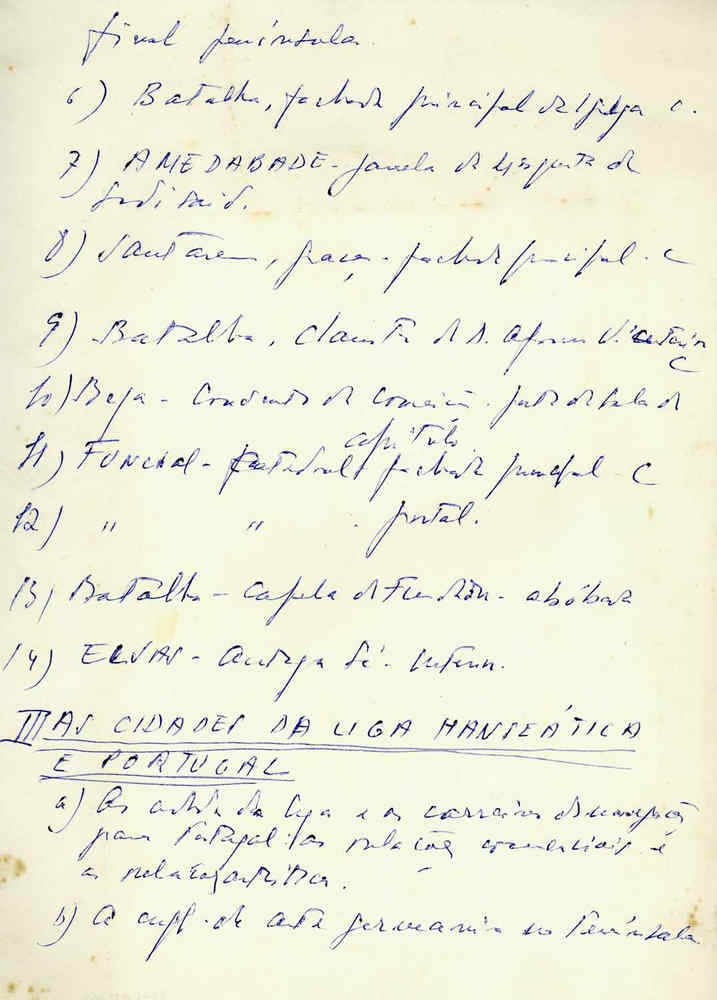 final península.
6) Batalha, fachada principal da Igreja C.
7) AMEDABADE - janela da mesquita de
Sidi Said.
8) Santarem, graça - fachada principal - C
9) Batalha, claustro de D. Afonso V.
C
10) Beja - Convento da Conceição - porta da sala do
capítulo
11) FUNCHAL - Catedral fachada principal - C
12) " " . portal.
13) Batalha - Capela do Fundador - abóbada
14) ELVAS - Antiga Sé - Interior.
III AS CIDADES DA LIGA HANSEÁTICA
E PORTUGAL
a) As da Liga e as carreiras de navegação
para Portugal: as relações comerciais e
as relações artísticas.
b) A da arte germanica na Península